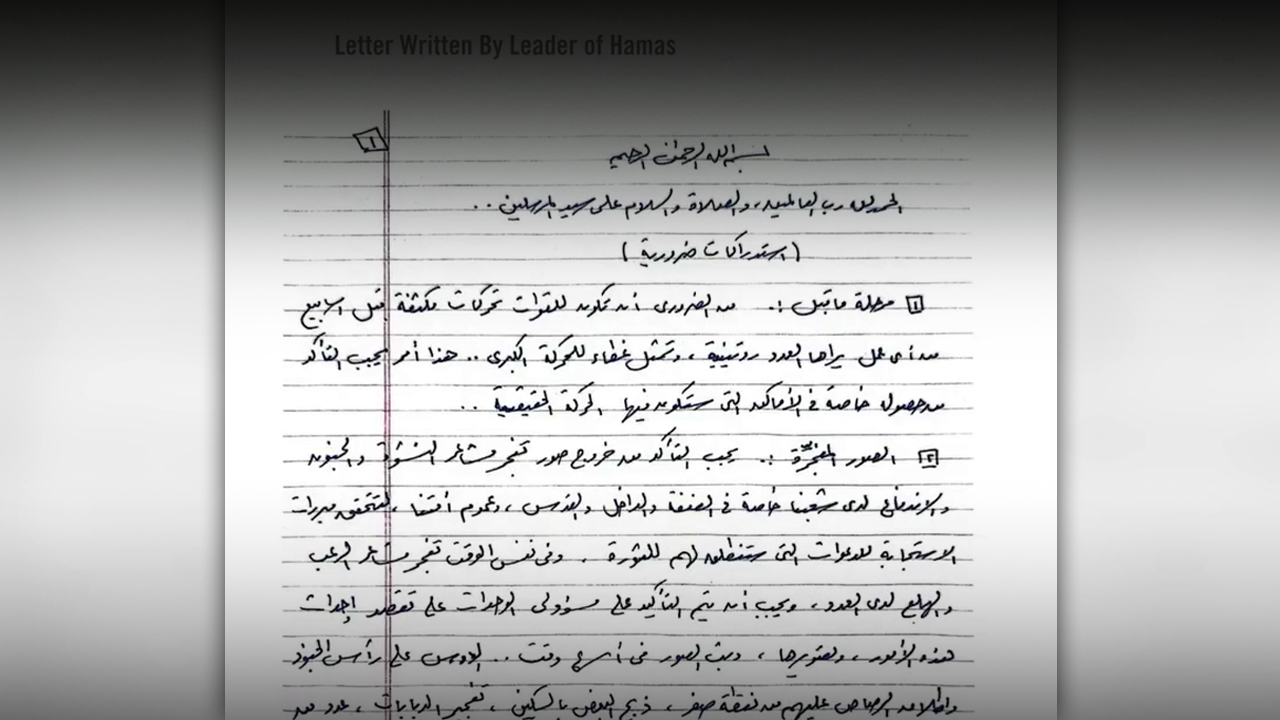 Letter Written By Leader of Hamas
١
بسم الله الرحمن الرحيم
الحمد لله رب العالمين، والصلاة والسلام على سيد المرسلين ..
(استدراكات ضرورية)
١ مرحلة ما قبل :. من الضروري أن تكون للقوات تحركات مكثفة قبل أسابيع
من أي عمل يراها العدو روتينية، وتمثل غطاء للحركة الكبرى .. هذا أمر يجب التأكد
من حصوله خاصة في الأماكن التي ستكون فيها الحركة الحقيقية ..
٢ الصور المفجرة :. يجب التأكد من خروج صور تفجر مشاعر النشوة والجنون
والاندفاع لدى شعبنا خاصة في الضفة والداخل والقدس، وعموم أمتنا، لتتحقق مبررات
الاستجابة للدعوات التي ستنطلق لهم للثورة . وفي نفس الوقت تفجر مشاعر الرعب
والهلع لدى العدو، ويجب أن يتم التأكيد على مسؤولي الوحدات على تقصد إحداث
هذه الأمور، وتصويرها، وبث الصور في أسرع وقت .. الدوس على رأس الجنود
وإطلاق الرصاص عليهم من نقطة صفر، ذبح البعض بالسكين، تفجير الدبابات، عدد من